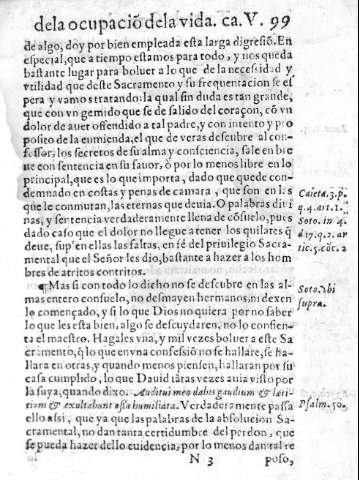 de la ocupaciõ de la vida. ca. V. 99
de algo, doy por bien empleada esta larga digresiõ. En
especial, que a tiempo estamos para todo, y nos queda
bastante lugar para boluer a lo que de la necessidad y
vtilidad que deste Sacramento y su frequentacion se es
pera y vamos tratando: la qual sin duda es tan grande,
que con vn gemido que se de salido del coraçon, cõ vn
dolor de auer offendido a tal padre, y con intento y pro
posito de la enmienda, el que de veras descubre al con-
fessor, los secretos de su alma y consciencia, sale en bre
ue con sentencia en su fauor, o por lo menos libre en lo
principal, que es lo que importa, dado que quede con-
demnado en costas y penas de camara, que son en las
que le conmutan, las eternas que deuia. O palabras diui
nas, y sentencia verdaderamente llena de cõsuelo, pues
dado caso que el dolor no llegue a tener los quilates q̃
deue, supl'en ellas las faltas, en fé del priuilegio Sacra-
mental que el Señor les dio, bastante a hazer a los hom
bres de atritos contritos.
Caieta. 3. p.
q. 4. art. 1.
Soto. in 4.
d. 17. q. 2. ar
tic. 5. cõc. 2
¶ Mas si con todo lo dicho no se descubre en las al-
mas entero consuelo, no desmayen hermanos, ni dexen
lo començado, y si lo que Dios no quiera por no saber
lo que les esta bien, algo se descuydaren, no lo confien-
ta el maestro. Hagales vña, y mil vezes boluer a este Sa
cramento, q̃ lo que en vna confessiõ no se hallare, se ha
llara en otras, y quando menos piensen, hallaran por su
casa cumplido, lo que Dauid tãtas vezes auia visto por
la suya, quando dixo. Auditui meo dabis gaudium & læti-
tiam & exultabunt ossa humiliata. Verdaderamente passa
ello assi, que ya que las palabras de la absolucion Sa-
cramental, no dan tanta certidumbre del perdon, que
se pueda hazer dello euidencia, por lo menos dan tal re
Soto. vbi
supra.
Psalm. 50.
N 3 poso,